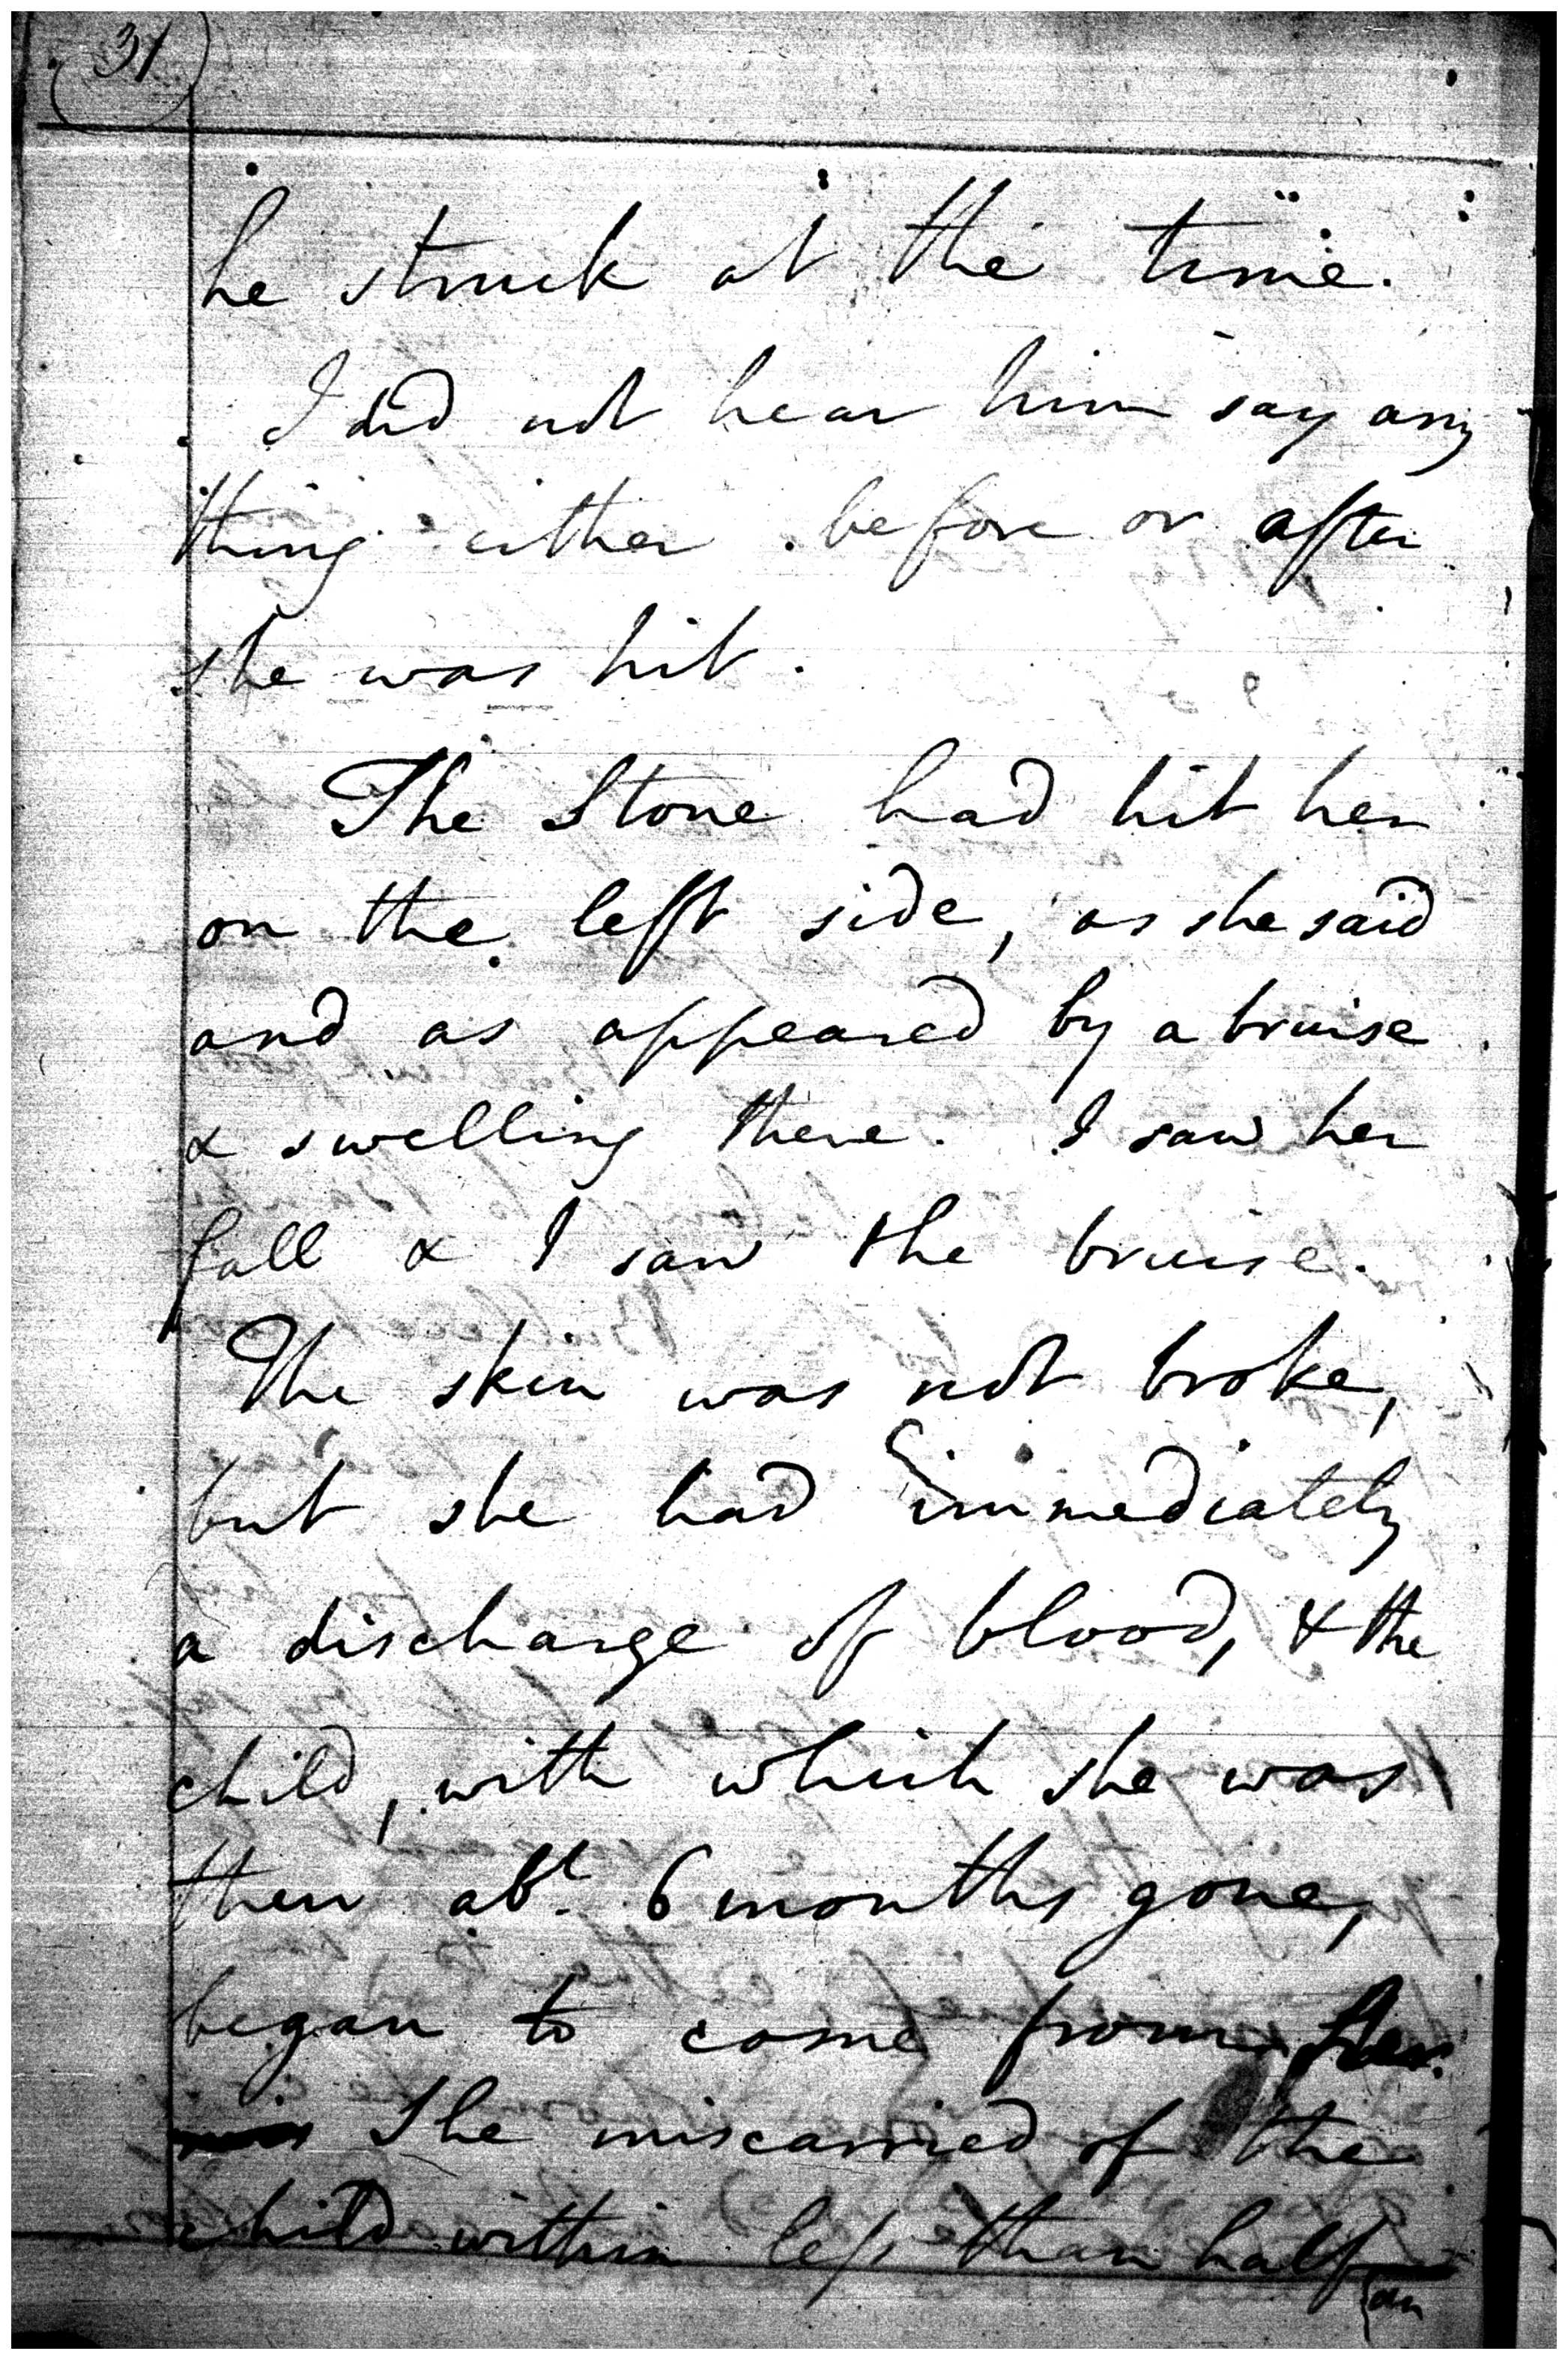 31
he struck at the time.
I did not hear him say any
thing either before or after
she was hit.
The Stone had hit her
on the left side, as she said
and as appeared by a bruise
& swelling there. I saw her
fall & I saw the bruise.
The skin was not broke,
but she had immediately
a discharge of blood, & the
child, with which she was
then abt. 6 months gone,
began to come from her.
She miscarried of the
child within less than half
an